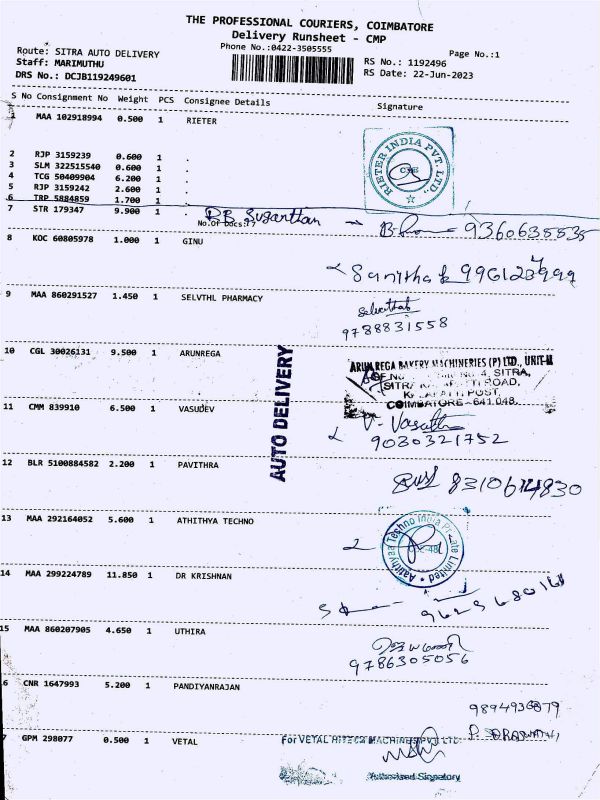 THE PROFESSIONAL COURIERS, COIMBATORE
Delivery Runsheet - CMP
Phone No.:0422-3505555
Page No.:1
Route: SITRA AUTO DELIVERY
Staff: MARIMUTHU
DRS No.: DCJB119249601
RS No.: 1192496
RS Date: 22-Jun-2023
S No Consignment No Weight PCS Consignee Details Signature
1 MAA 102918994 0.500 1 RIETER
RIETER INDIA PVT. LTD.
2 RJP 3159239 0.600 1 .
3 SLM 322515540 0.600 1 .
4 TCG 50409904 6.200 1 .
5 RJP 3159242 2.600 1 .
6 TRP 5884859 1.700 1 .
7 STR 179347 9.900 1 .
No.Of Docs:7
9360635535
8 KOC 60805978 1.000 1 GINU
9 MAA 860291527 1.450 1 SELVTHL PHARMACY
9788831558
10 CGL 30026131 9.500 1 ARUNREGA
ARUN REGA BAKERY MACHINERIES (P) LTD., UNIT-II
4, SITRA,
ROAD,
POST,
COIMBATORE - 641 048.
AUTO DELIVERY
11 CMM 839910 6.500 1 VASUDEV
V. Vasutha
9030321752
12 BLR 5100884582 2.200 1 PAVITHRA
13 MAA 292164052 5.600 1 ATHITHYA TECHNO
Techno India Private Limited
14 MAA 299224789 11.850 1 DR KRISHNAN
15 MAA 860207905 4.650 1 UTHIRA
9786305056
6 CNR 1647993 5.200 1 PANDIYANRAJAN
P. SARASWATHI
7 GPM 298077 0.500 1 VETAL
For VETAL HITECH MACHINES PVT LTD
Authorised Signatory